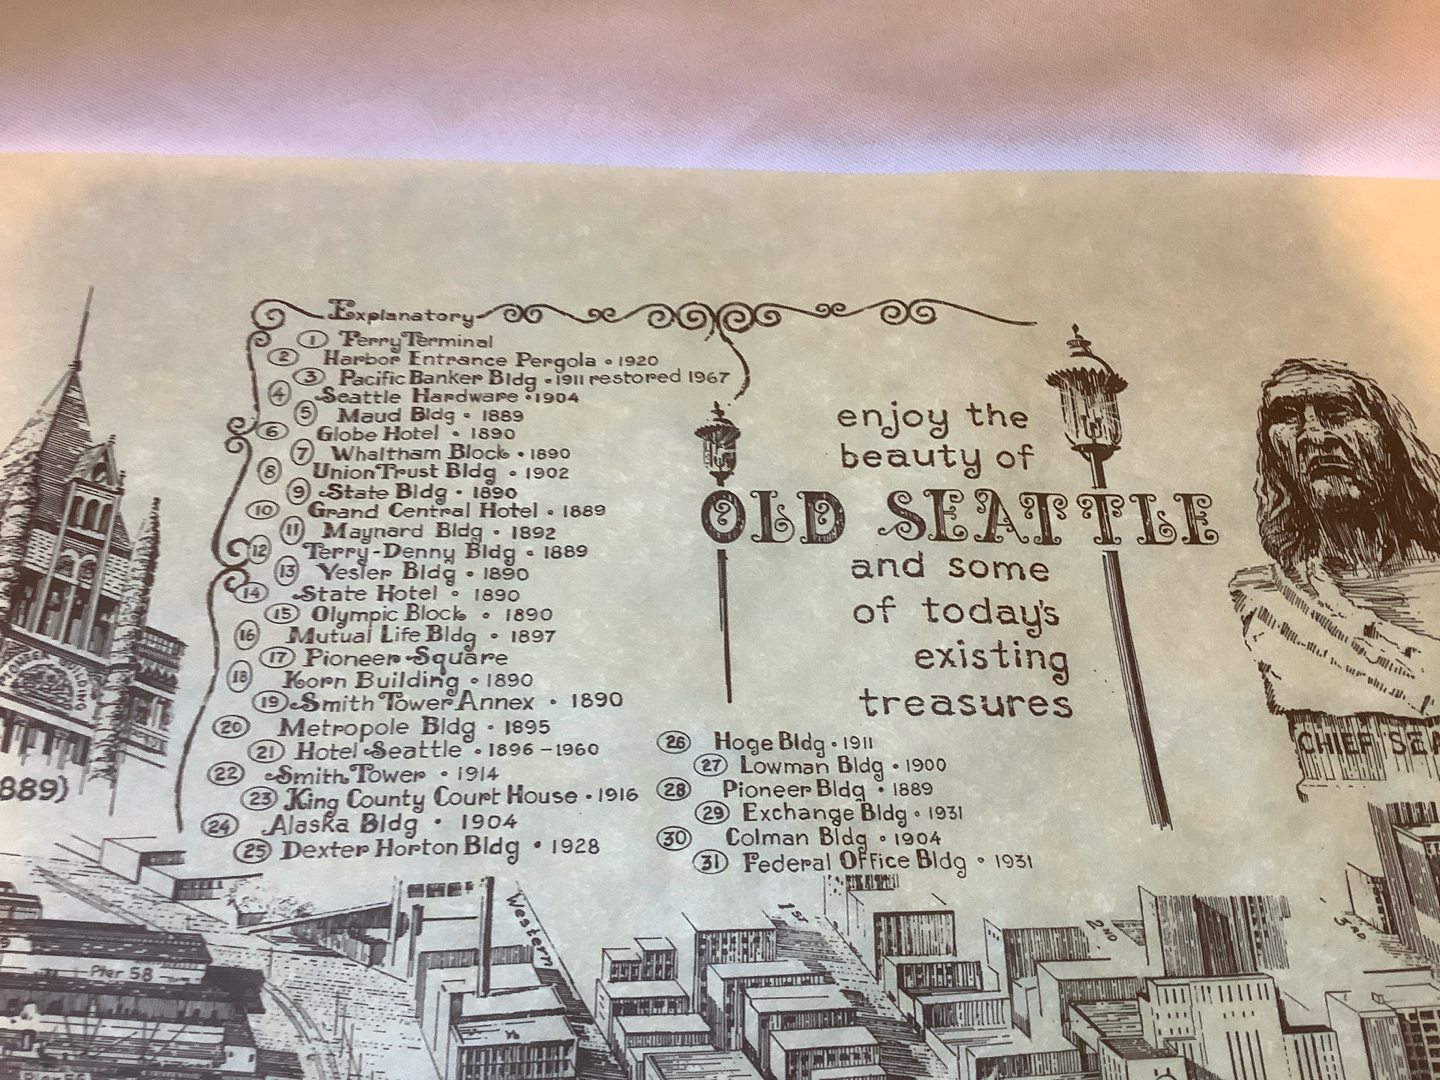 Explanatory
1 Ferry Terminal
2 Harbor Entrance Pergola • 1920
3 Pacific Banker Bldg • 1911 restored 1967
4 Seattle Hardware • 1904
5 Maud Bldg • 1889
6 Globe Hotel • 1890
7 Whaltham Block • 1890
8 Union Trust Bldg • 1902
9 State Bldg • 1890
10 Grand Central Hotel • 1889
11 Maynard Bldg • 1892
12 Terry-Denny Bldg • 1889
13 Yesler Bldg • 1890
14 State Hotel • 1890
15 Olympic Block • 1890
16 Mutual Life Bldg • 1897
17 Pioneer Square
18 Korn Building • 1890
19 Smith Tower Annex • 1890
20 Metropole Bldg • 1895
21 Hotel Seattle • 1896 – 1960
22 Smith Tower • 1914
23 King County Court House • 1916
24 Alaska Bldg • 1904
25 Dexter Horton Bldg • 1928
enjoy the
beauty of
OLD SEATTLE
and some
of today's
existing
treasures
26 Hoge Bldg • 1911
27 Lowman Bldg • 1900
28 Pioneer Bldg • 1889
29 Exchange Bldg • 1931
30 Colman Bldg • 1904
31 Federal Office Bldg • 1931
CHIEF SEA
PIONEER BUILDING
889)
Western
1ST
2ND
3RD
Pier 58